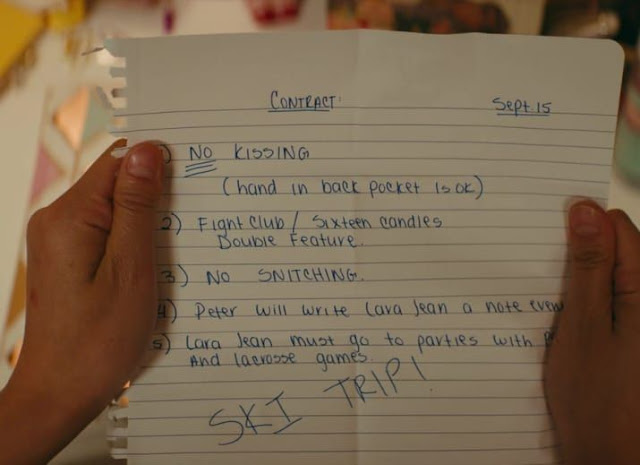 CONTRACT:
Sept. 15
) NO KISSING
(hand in back pocket is ok)
2) Fight Club / Sixteen candles
Double Feature.
3) NO SNITCHING.
4) Peter will write Lara Jean a note
5) Lara Jean must go to parties with
And lacrosse games.
SKI TRIP!